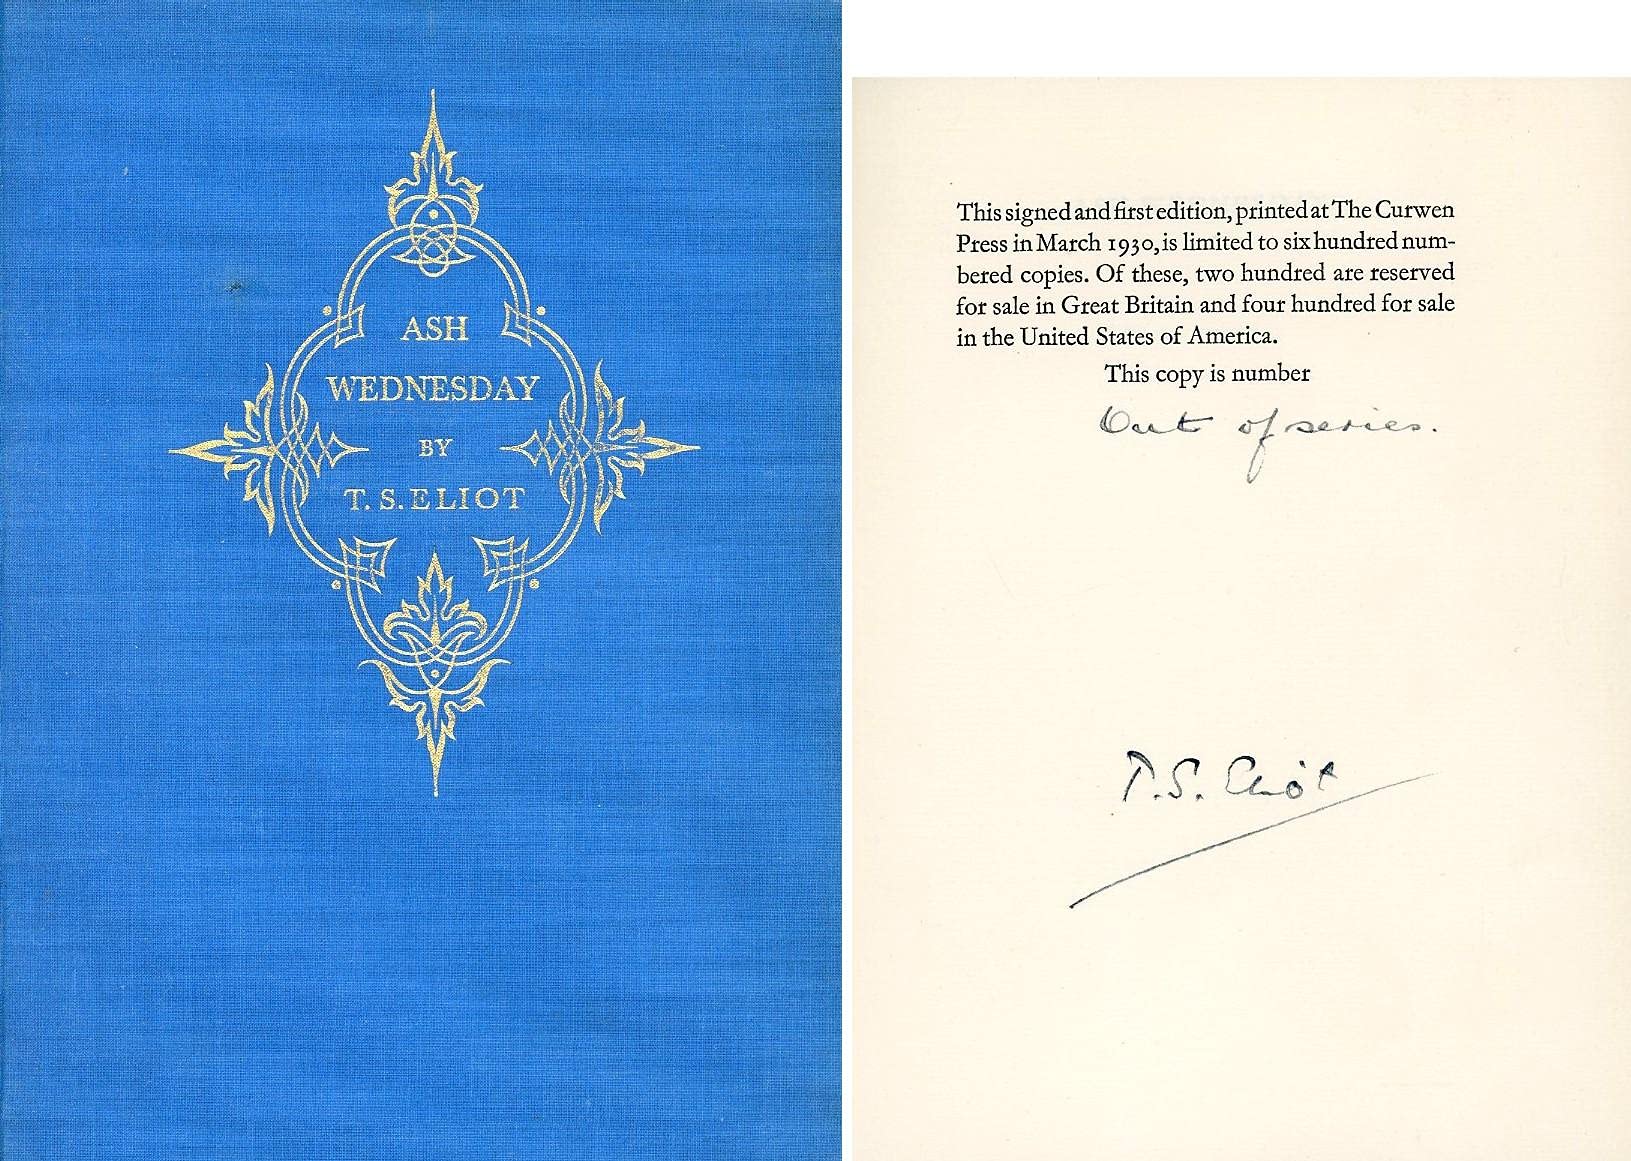 ASH
WEDNESDAY
BY
T. S. ELIOT
This signed and first edition, printed at The Curwen
Press in March 1930, is limited to six hundred num-
bered copies. Of these, two hundred are reserved
for sale in Great Britain and four hundred for sale
in the United States of America.
This copy is number
Out of series.
T. S. Eliot